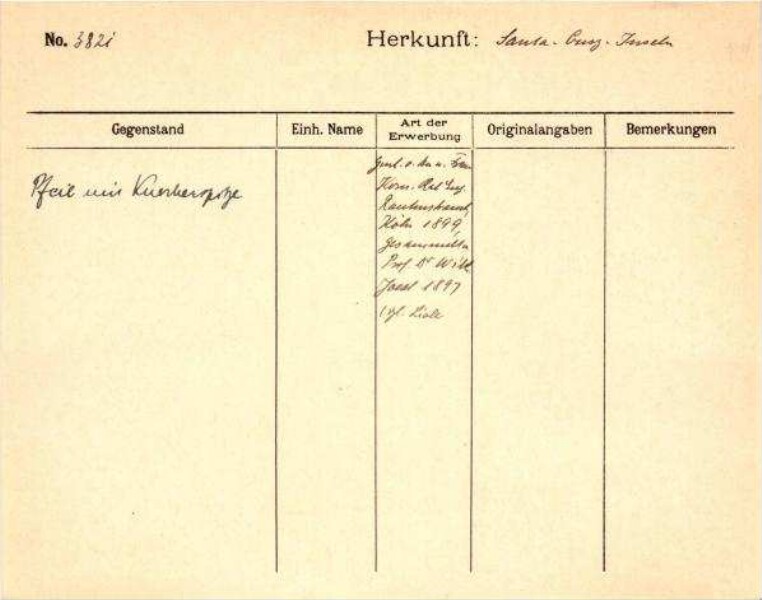 No. 3821
Herkunft: Santa-Cruz-Inseln
Gegenstand
Einh. Name
Art der Erwerbung
Originalangaben
Bemerkungen
Pfeil mit Knochenspitze
Gesch. v. Hrn u. Frau
Kom. Rat Eug.
Rautenstrauch,
Köln 1899,
gesammelt v.
Prof. Dr Wilh.
Joest 1897